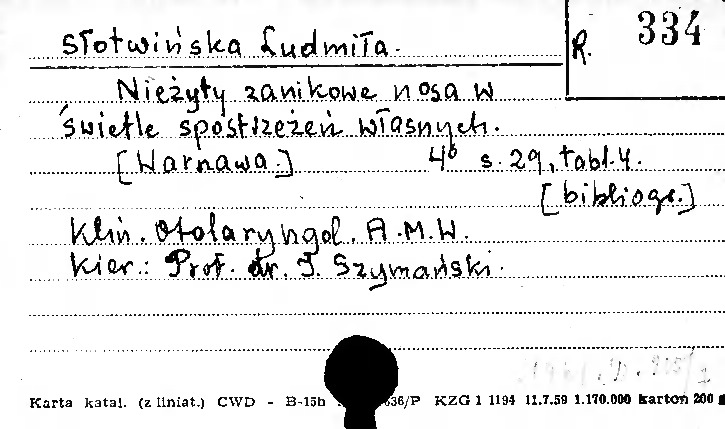 Słotwińska Ludmiła.
R. 334
Nieżyty zanikowe nosa w
świetle spostrzeżeń własnych.
[Warnawa.] 4° s. 29, tabl. 4.
[bibliogr.]
Klin. Otolaryngol. A.M.W.
Kier.: Prof. dr. J. Szymański.
Karta katal. (z liniat.) CWD - B-15b 636/P KZG 1 1194 11.7.59 1.170.000 karton 200 g